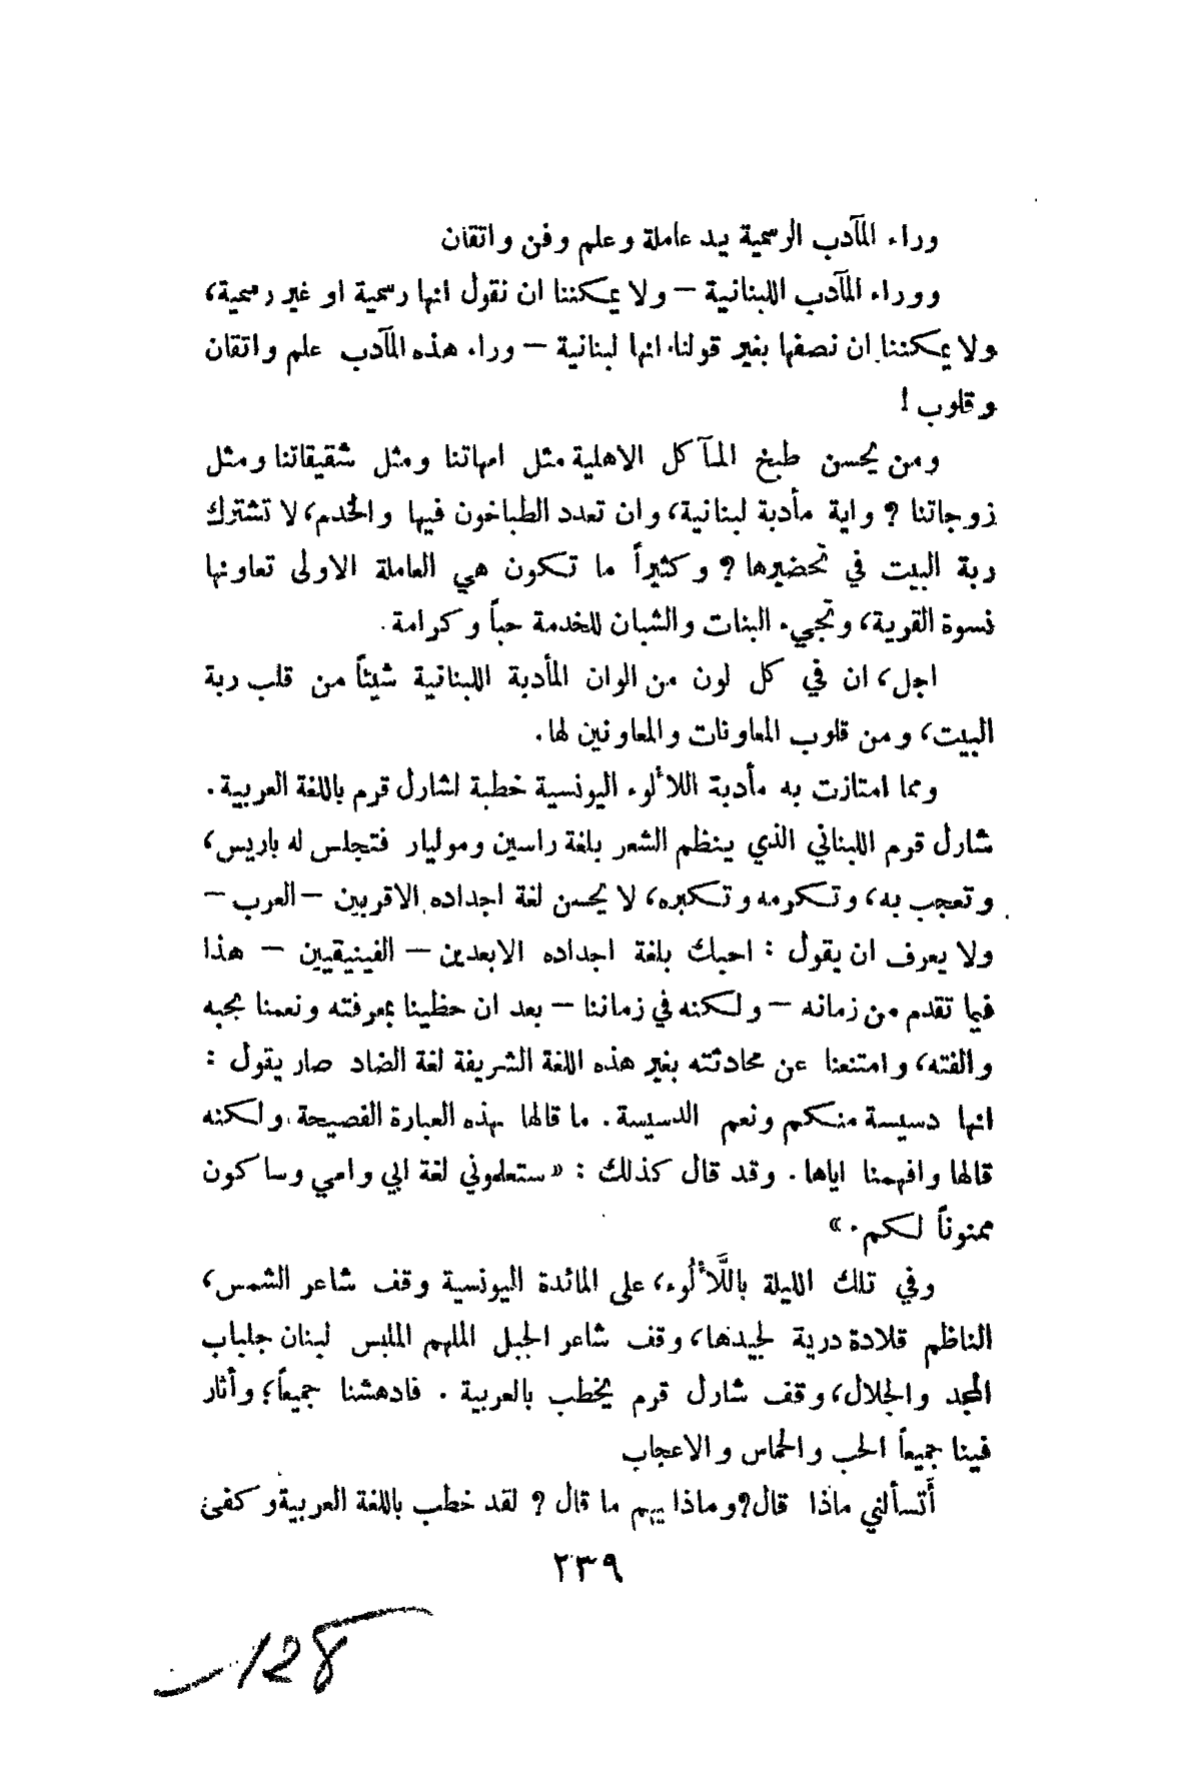 وراء المآدب الرسمية يد عاملة وعلم وفن واتقان
ووراء المآدب اللبنانية – ولا يمكننا ان نقول انها رسمية او غير رسمية،
ولا يمكننا ان نصفها بغير قولنا انها لبنانية – وراء هذه المآدب علم واتقان
وقلوب !
ومن يحسن طبخ المآكل الاهلية مثل امهاتنا ومثل شقيقاتنا ومثل
زوجاتنا ? واية مأدبة لبنانية، وان تعدد الطباخون فيها والخدم، لا تشترك
ربة البيت في تحضيرها ? وكثيراً ما تكون هي العاملة الاولى تعاونها
نسوة القرية، وتجيء البنات والشبان للخدمة حباً وكرامة .
اجل، ان في كل لون من الوان المأدبة اللبنانية شيئاً من قلب ربة
البيت، ومن قلوب المعاونات والمعاونين لها.
ومما امتازت به مأدبة اللألوء اليونسية خطبة لشارل قرم باللغة العربية.
شارل قرم اللبناني الذي ينظم الشعر بلغة راسين وموليار فتجلس له باريس،
وتعجب به، وتكرمه وتكبره، لا يحسن لغة اجداده الاقربين – العرب –
ولا يعرف ان يقول : احبك بلغة اجداده الابعدين – الفينيقيين – هذا
فيما تقدم من زمانه – ولكنه في زماننا – بعد ان حظينا بمعرفته ونعمنا بحبه
والفته، وامتنعنا عن محادثته بغير هذه اللغة الشريفة لغة الضاد صار يقول :
انها دسيسة منكم ونعم الدسيسة. ما قالها بهذه العبارة الفصيحة، ولكنه
قالها وافهمنا اياها. وقد قال كذلك : «ستعلموني لغة ابي وامي وساكون
ممنوناً لكم.»
وفي تلك الليلة باللَّألُوء، على المائدة اليونسية وقف شاعر الشمس،
الناظم قلادة درية لجيدها، وقف شاعر الجبل الملهم الملبس لبنان جلباب
المجد والجلال، وقف شارل قرم يخطب بالعربية . فادهشنا جميعاً؛ وأثار
فينا جميعاً الحب والحماس والاعجاب
أَتسألني ماذا قال?وماذا يهم ما قال ? لقد خطب باللغة العربية وكفى
٢٣٩
128